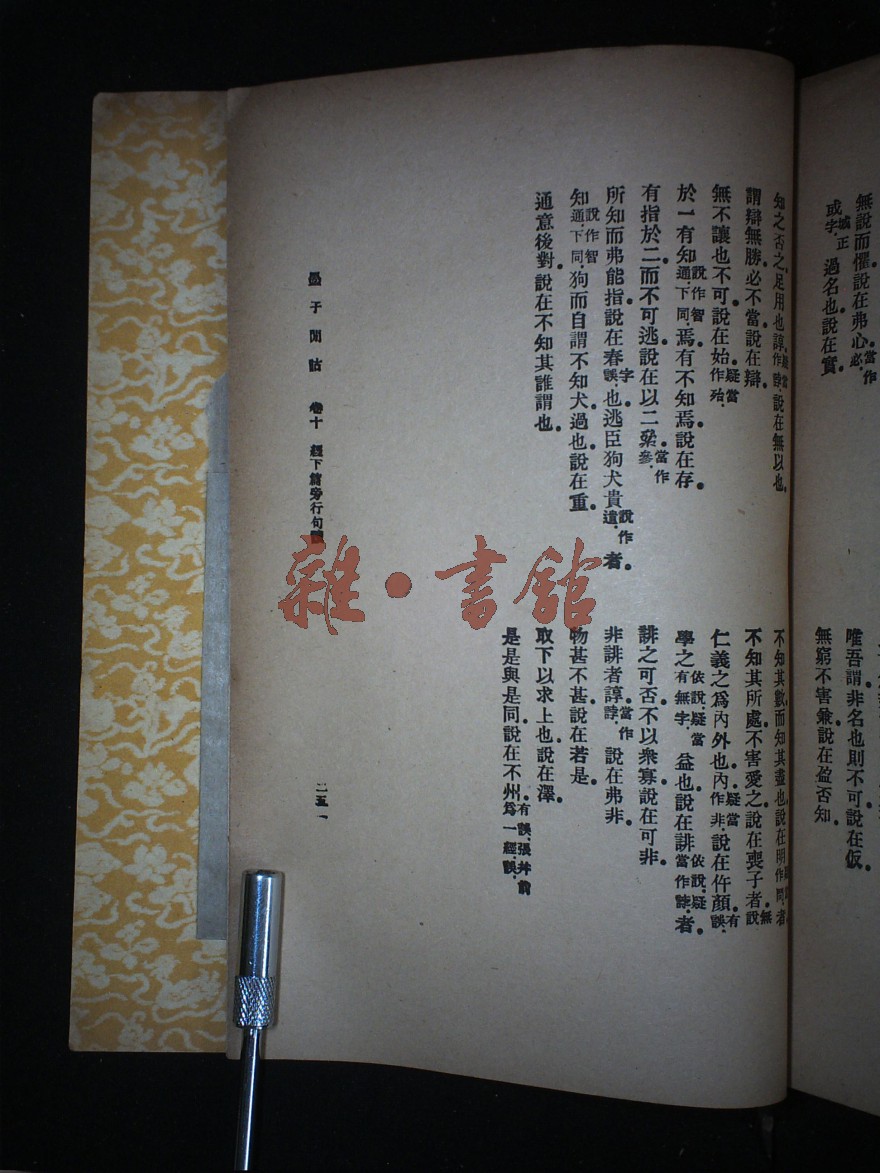 無說而懼說在弗心當作必
或域正字過名也說在實
唯吾謂非名也則不可說在仮
無窮不害兼說在盈否知
知之否之足用也諄疑當作誖說在無以也
謂辯無勝必不當說在辯
無不讓也不可說在始疑當作殆
於一有知說作智通下同焉有不知焉說在存
有指於二而不可逃說在以二絫當作參
所知而弗能指說在春字誤也逃臣狗犬貴說作遺者
知說作智通下同狗而自謂不知犬過也說在重
通意後對說在不知其誰謂也
不知其數而知其盡也說在明作問者
不知其所處不害愛之說在喪子者無說
仁義之爲內外也內疑當作非說在仵顏有誤
學之依說疑當有無字益也說在誹依說疑當作誖者
誹之可否不以衆寡說在可非
非誹者諄當作誖說在弗非
物甚不甚說在若是
取下以求上也說在澤
是是與是同說在不州有誤張幷前爲一經誤
墨子閒詁 卷十 經下篇旁行句讀
二五一
雜·書館